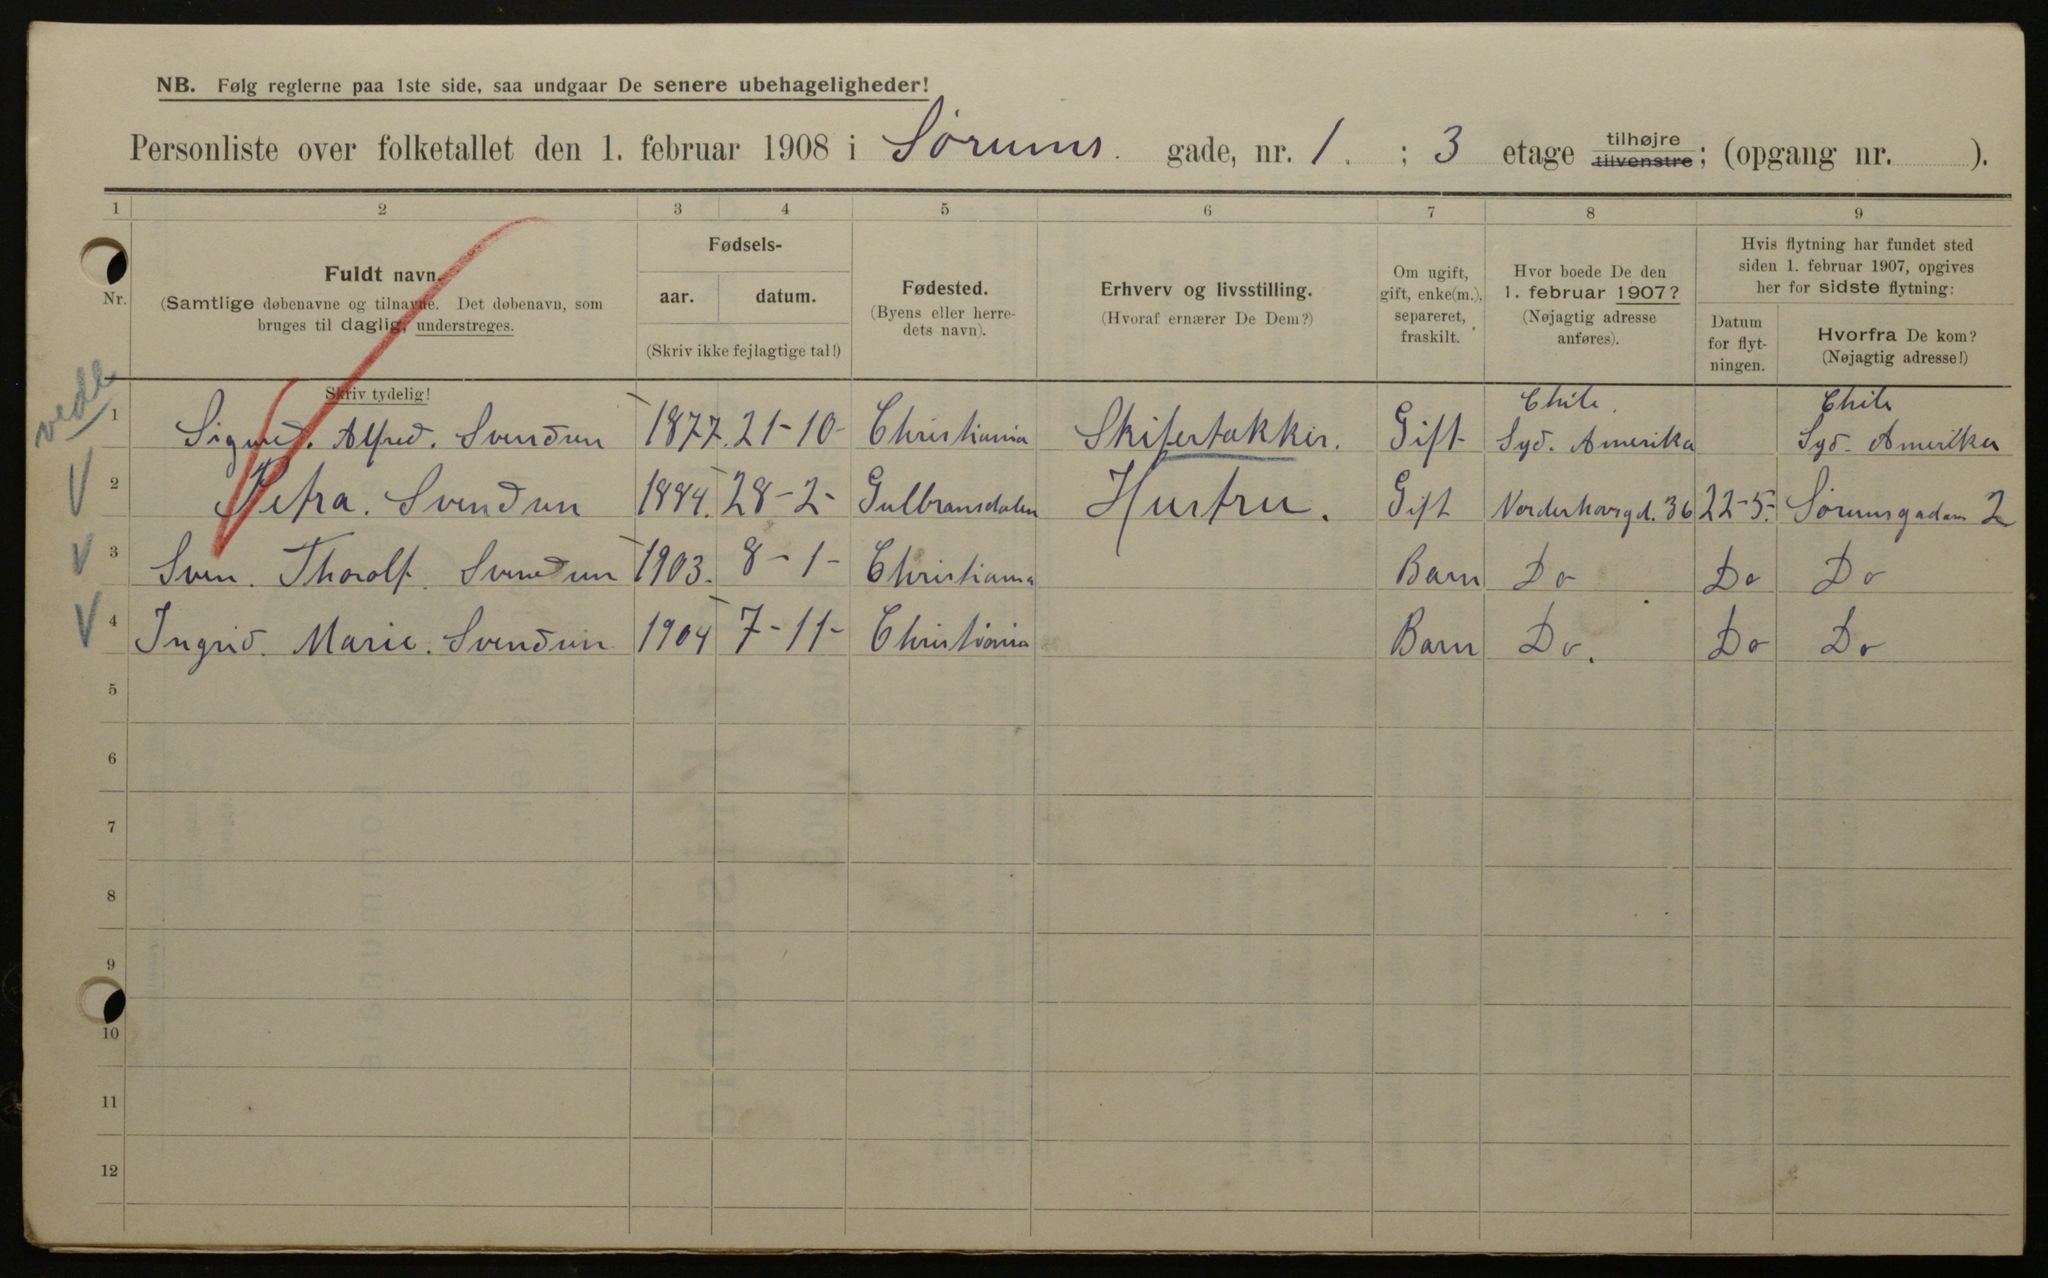 NB. Følg reglerne paa 1ste side, saa undgaar De senere ubehageligheder!
Personliste over folketallet den 1. februar 1908 i Sørums gade, nr. 1. ; 3 etage tilhøjre tilvenstre; (opgang nr. ).
1 2 3 4 5 6 7 8 9
Nr.
Fuldt navn.
(Samtlige døbenavne og tilnavne. Det døbenavn, som
bruges til daglig, understreges.
Skriv tydelig!
Fødsels-
aar. datum.
(Skriv ikke fejlagtige tal!)
Fødested.
(Byens eller herre-
dets navn).
Erhverv og livsstilling.
(Hvoraf ernærer De Dem?)
Om ugift,
gift, enke(m.),
separeret,
fraskilt.
Hvor boede De den
1. februar 1907?
(Nøjagtig adresse
anføres).
Hvis flytning har fundet sted
siden 1. februar 1907, opgives
her for sidste flytning:
Datum
for flyt-
ningen.
Hvorfra De kom?
(Nøjagtig adresse!)
Chile. Chile
1 Sigurd. Alfred. Svendsen 1877. 21-10- Christiania Skifertækker. Gift Syd. Amerika Syd. Amerika
2 Petra. Svendsen 1884. 28-2- Gulbransdalen Hustru. Gift Norderhovsgd. 36 22-5- Sørumsgaden 2
3 Sven. Thoralf. Svendsen 1903. 8-1- Christiania Barn Do Do Do
4 Ingrid. Marie. Svendsen 1904 7-11- Christiania Barn Do. Do Do
5
6
7
8
9
10
11
12